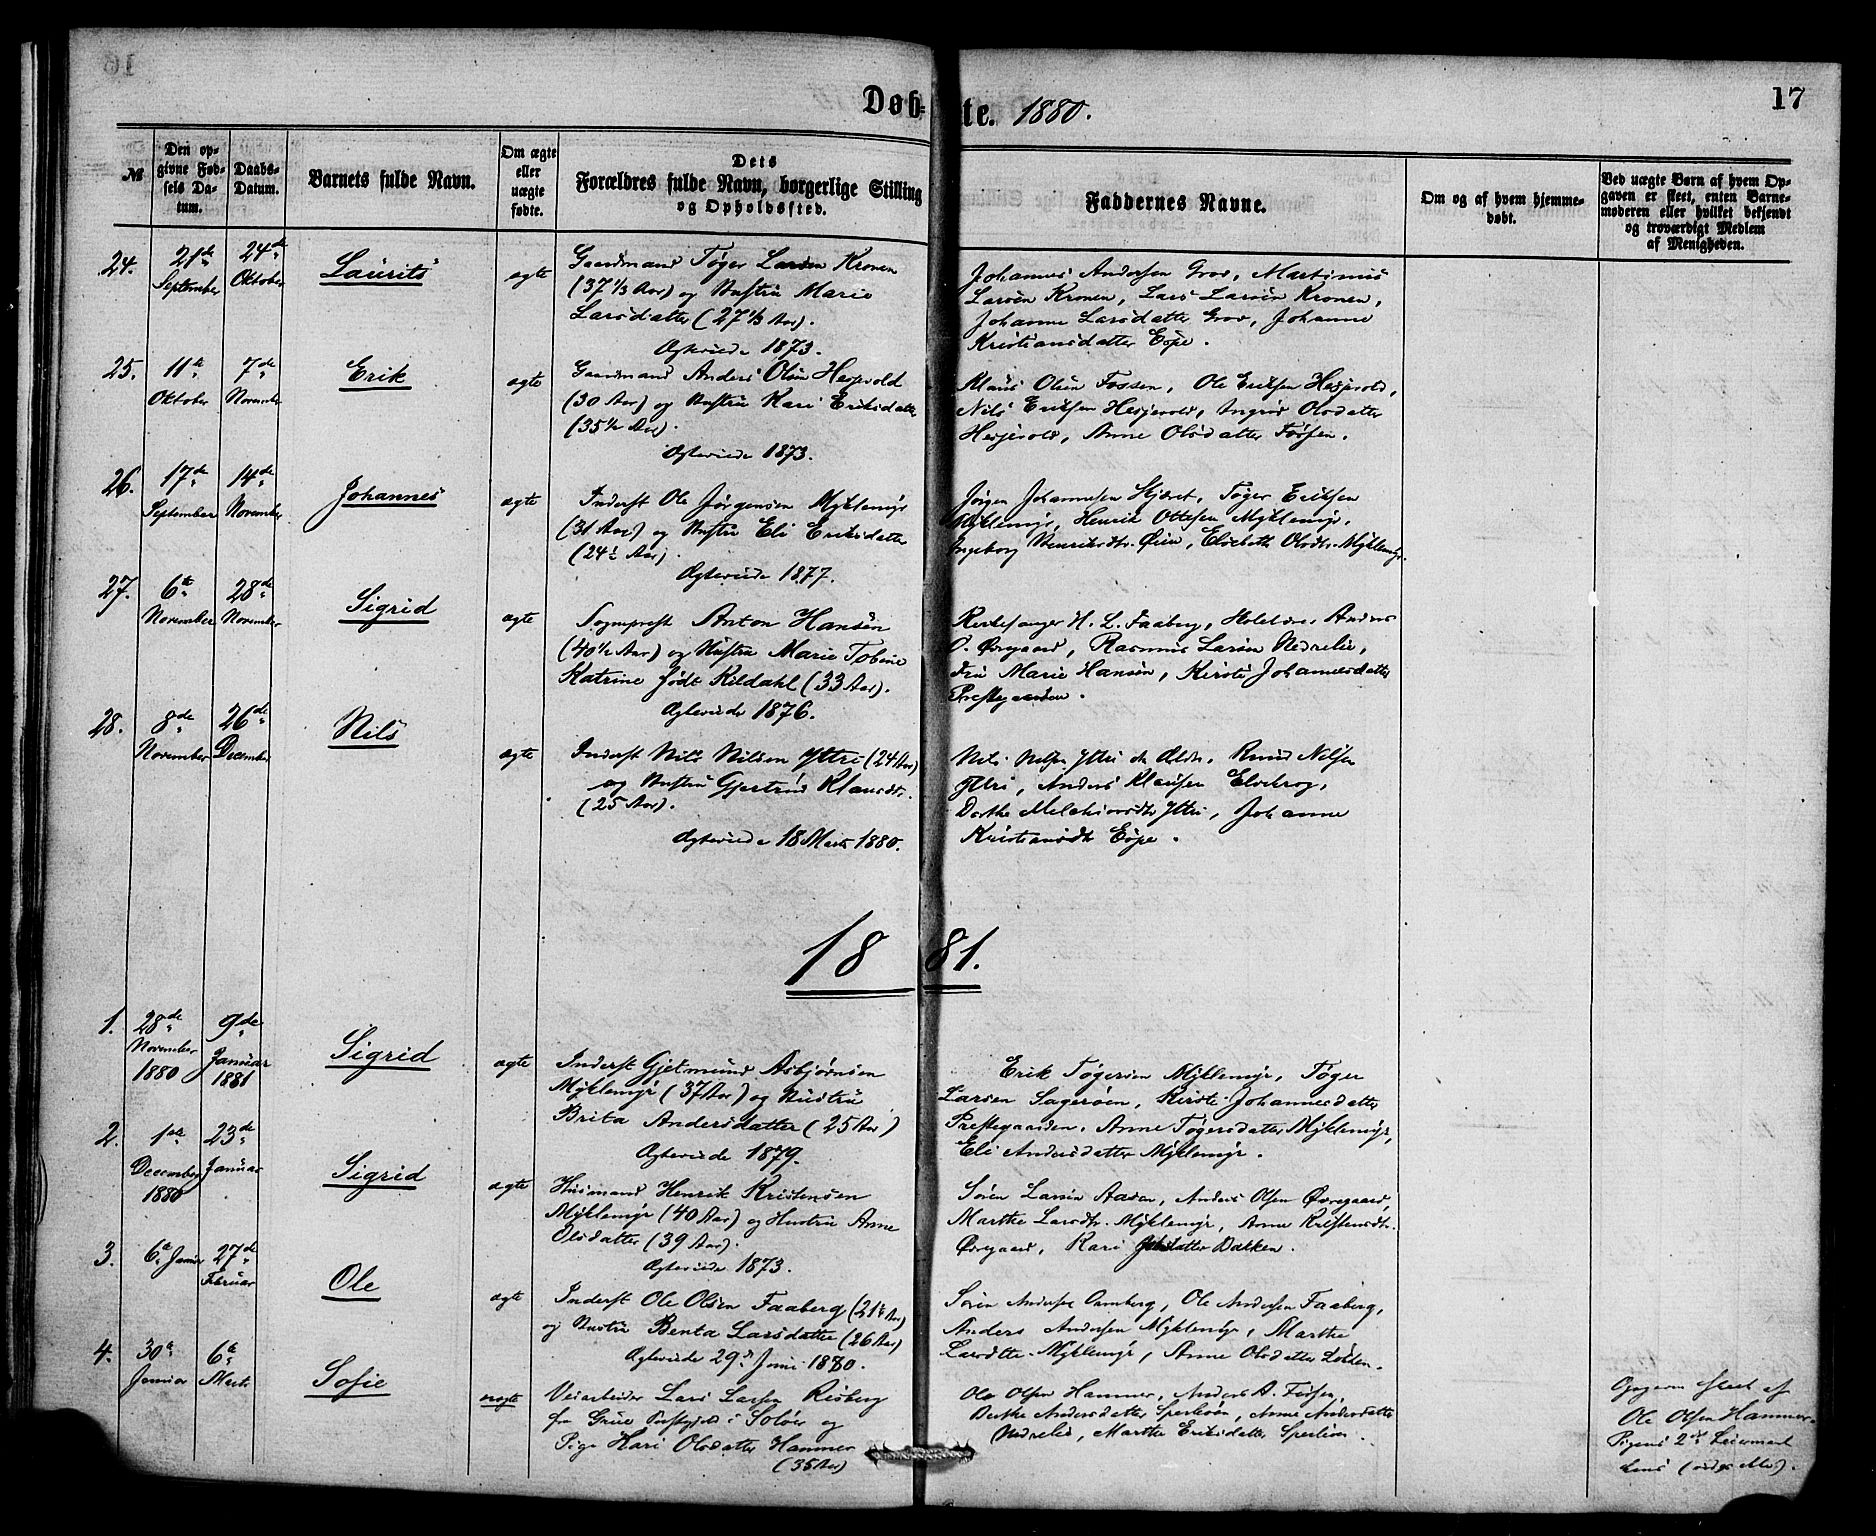 Døbte. 1880.
17
№
Den opgivne Fødsels Datum.
Daabs-Datum.
Barnets fulde Navn.
Om ægte eller uægte fødte.
Dets Forældres fulde Navn, borgerlige Stilling og Opholdssted.
Faddernes Navne.
Om og af hvem hjemmedøbt.
Ved uægte Børn af hvem Opgaven er skeet, enten Barnemoderen eller hvilket bekjendt og troværdigt Medlem af Menigheden.
24.
21de September
24de Oktober
Laurits
ægte
Gaardmand Tøger Larsen Kronen
(37 1/3 Aar) og Hustru Marie
Larsdatter (27 1/3 Aar).
Ægteviede 1873.
Johannes Andersen Grov, Martinus
Larsen Kronen, Lars Larsen Kronen,
Johanne Larsdatter Grov, Johanne
Kristiansdatter Espe.
25.
11te Oktober
7de November
Erik
ægte
Gaardmand Anders Olsen Hesjevold
(30 Aar) og Hustru Kari Eriksdatter
(35 1/2 Aar).
Ægteviede 1873.
Klaus Olsen Fossen, Ole Eriksen Hesjevold,
Nils Eriksen Hesjevold, Ingrid Olsdatter
Hesjevold, Anne Olsdatter Fossen.
26.
17de September
14de November
Johannes
ægte
Inderst Ole Jørgensen Myklemyr
(31 Aar) og Hustru Eli Eriksdatter
(24 1/2 Aar).
Ægteviede 1877.
Jørgen Johannesen Kjæret, Tøger Eriksen
Myklemyr, Henrik Ottesen Myklemyr,
Ingeborg Henriksdtr. Øien, Elsebeth Olsdtr. Myklemyr.
27.
6te November
28de November
Sigrid
ægte
Sogneprest Anton Hansen
(40 1/2 Aar) og Hustru Marie Tobine
Katrine født Kildahl (33 Aar).
Ægteviede 1876.
Kirkesanger H. L. Faaberg, Anders
O. Øvregaard, Rasmus Larsen Nedrelie,
Fru Marie Hansen, Kirsti Johannesdatter
Prestegaarden.
28.
8de November
26de December
Nils
ægte
Inderst Nils Nilsen Ytri (24 Aar)
og Hustru Gjertrud Klausdtr.
(25 Aar).
Ægteviede 18 Marts 1880.
Nils Nilsen Ytri d. Ældre, Knud Nilsen
Ytri, Anders Klausen Elvekrog,
Dorthe Melchiorsdtr Ytri, Johanne
Kristiansdtr Espe.
1881.
1.
28de November 1880
9de Januar 1881
Sigrid
ægte
Inderst Gjetmund Asbjørnsen
Myklemyr (37 Aar) og Hustru
Brita Andersdatter (25 Aar)
Ægteviede 1879.
Erik Tøgersen Myklemyr, Tøger
Larsen Sagerøen, Kirsti Johannesdatter
Prestegaarden, Anne Tøgersdatter Myklemyr,
Eli Andersdatter Myklemyr.
2.
1ste December 1880
23de Januar
Sigrid
ægte
Husmand Henrik Kristensen
Myklemyr (40 Aar) og Hustru Anne
Olsdatter (39 Aar).
Ægteviede 1873.
Søren Larsen Aasen, Anders Olsen Øvregaard,
Marthe Larsdtr. Myklemyr, Anne Kristensdtr.
Øvregaard, Kari Bakken.
3.
6te Januar
27de Februar
Ole
ægte
Inderst Ole Olsen Faaberg (21 1/2 Aar)
og Hustru Benta Larsdatter (26 Aar)
Ægteviede 29de Juni 1880.
Søren Andersen Ormberg, Ole Andersen Faaberg,
Anders Andersen Myklemyr, Marthe
Larsdtr. Myklemyr, Anne Olsdatter Løkken.
4.
30te Januar
6te Marts
Sofie
uægte
Veiarbeider Lars Larsen Risberg
fra Grue Prestegjeld i Solør og
Pige Kari Olsdatter Hammer
(35 Aar)
Ole Olsen Hammer, Anders A. Fossen,
Berthe Andersdatter Sperleøen, Anne Andersdatter
Nedrelie, Marthe Eriksdatter Sperleøen.
Opgaven skeet af
Ole Olsen Hammer.
Pigens 2det Leiermaal